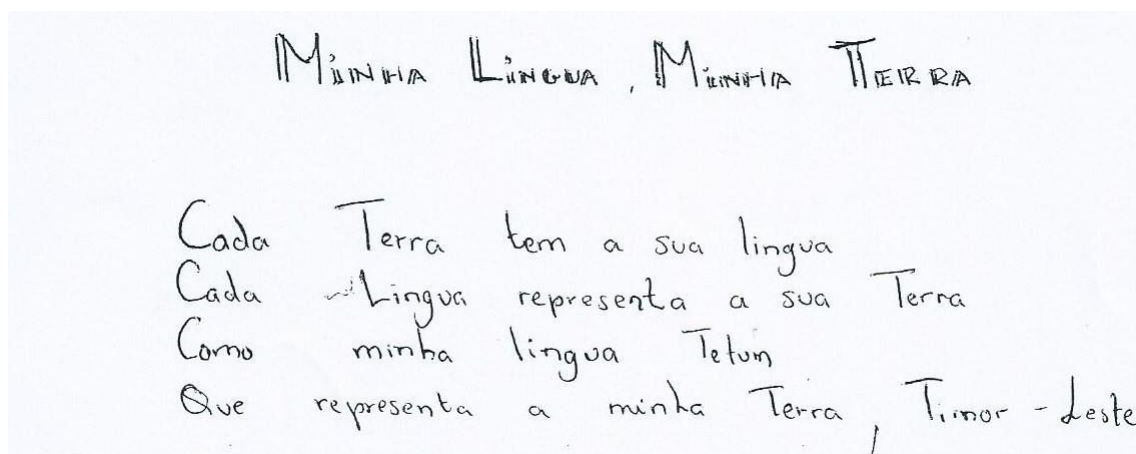 MINHA LINGUA, MINHA TERRA
Cada Terra tem a sua lingua
Cada Lingua representa a sua Terra
Como minha lingua Tetum
Que representa a minha Terra, Timor-Leste